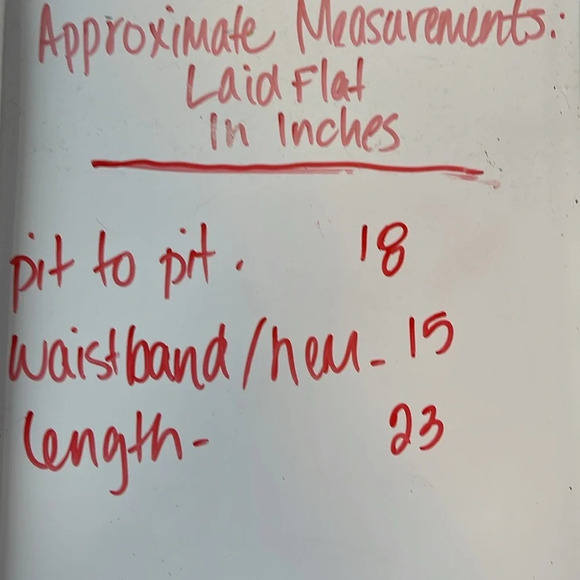 Approximate Measurements:
Laid Flat
In Inches
pit to pit. 18
waistband/hem- 15
length- 23